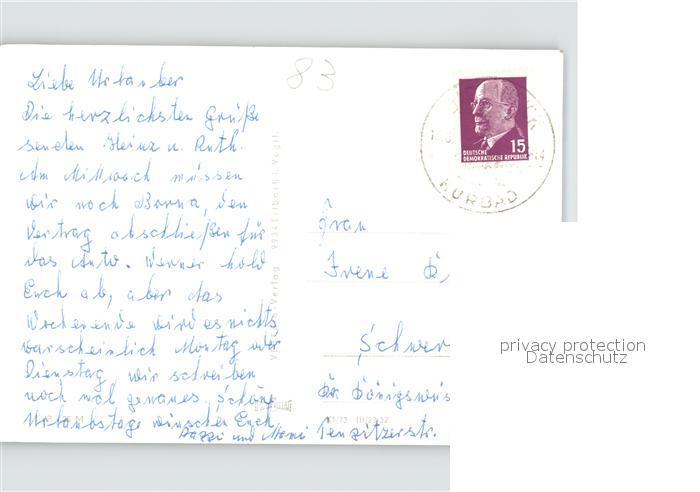 83
Liebe Urlauber
Die herzlichsten Grüße
senden Heinz u. Ruth.
Am Mittwoch müssen
wir nach Borna, den
Vertrag abschließen für
das Auto. Werner hold
Euch ab, aber das
Wochenende wird es nichts
warscheinlich Montag oder
Dienstag, wir schreiben
noch mal genaues, Schöne
Urlaubstage wünschen Euch
Pappi und Mami
15
DEUTSCHE
DEMOKRATISCHE REPUBLIK
KURBAD
Verlag 9934 Erlbach i. Vogtl.
Frau
Irene
Schwer
Königswus
Penzitzerstr.
privacy protection
Datenschutz